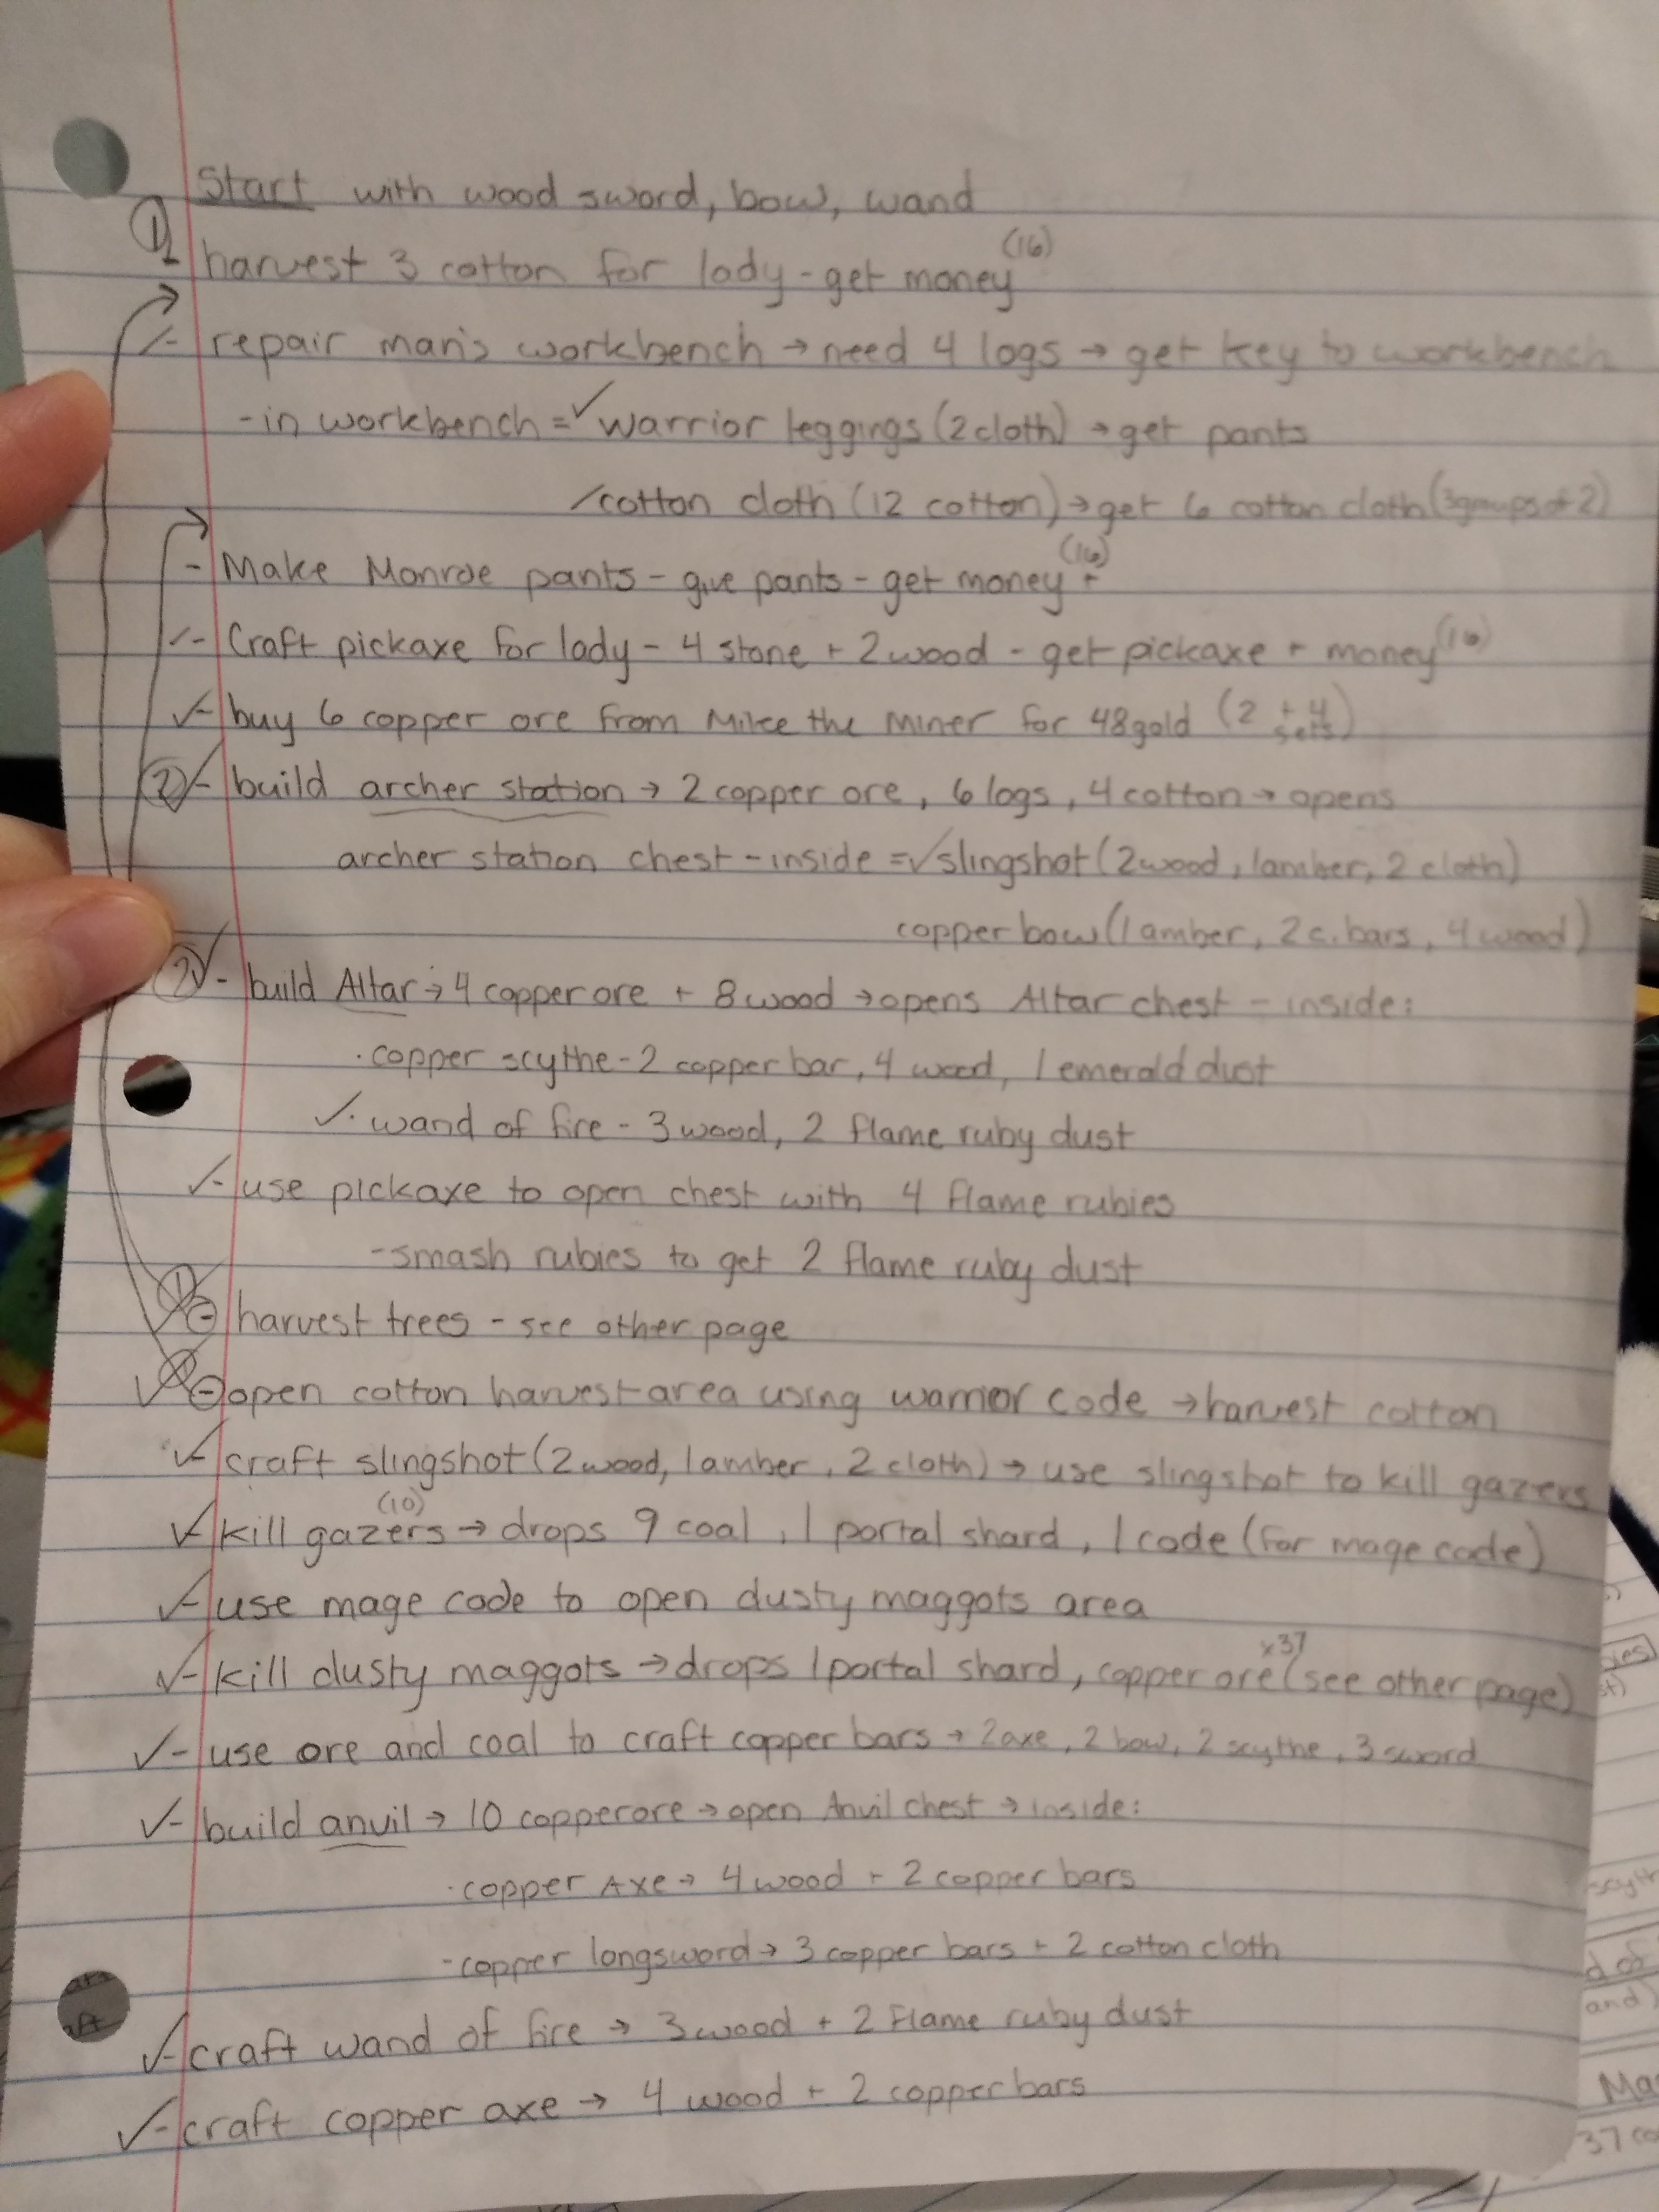 Start with wood sword, bow, wand
① harvest 3 cotton for lady - get money (16)
- repair man's workbench → need 4 logs → get key to workbench
- in workbench = ✓ warrior leggings (2 cloth) → get pants
/cotton cloth (12 cotton) → get 6 cotton cloth (3 groups of 2)
- Make Monroe pants - give pants - get money + (16)
✓- Craft pickaxe for lady - 4 stone + 2 wood - get pickaxe + money (16)
✓- buy 6 copper ore from Mike the Miner for 48 gold (2 + 4 sets)
②✓- build archer station → 2 copper ore, 6 logs, 4 cotton → opens
archer station chest - inside = ✓ slingshot (2 wood, 1 amber, 2 cloth)
copper bow (1 amber, 2 c. bars, 4 wood)
②✓- build Altar → 4 copper ore + 8 wood → opens Altar chest - inside:
· copper scythe - 2 copper bar, 4 wood, 1 emerald dust
✓· wand of fire - 3 wood, 2 flame ruby dust
✓- use pickaxe to open chest with 4 flame rubies
- smash rubies to get 2 flame ruby dust
- harvest trees - see other page
✓- open cotton harvest area using warrior code → harvest cotton
✓- craft slingshot (2 wood, 1 amber, 2 cloth) → use slingshot to kill gazers
✓- kill gazers (10) → drops 9 coal, 1 portal shard, 1 code (for mage code)
✓- use mage code to open dusty maggots area
✓- kill dusty maggots → drops 1 portal shard, copper ore x37 (see other page)
✓- use ore and coal to craft copper bars → 2 axe, 2 bow, 2 scythe, 3 sword
✓- build anvil → 10 copper ore → open Anvil chest → inside:
· copper Axe → 4 wood + 2 copper bars
- copper longsword → 3 copper bars + 2 cotton cloth
✓- craft wand of fire → 3 wood + 2 Flame ruby dust
✓- craft copper axe → 4 wood + 2 copper bars